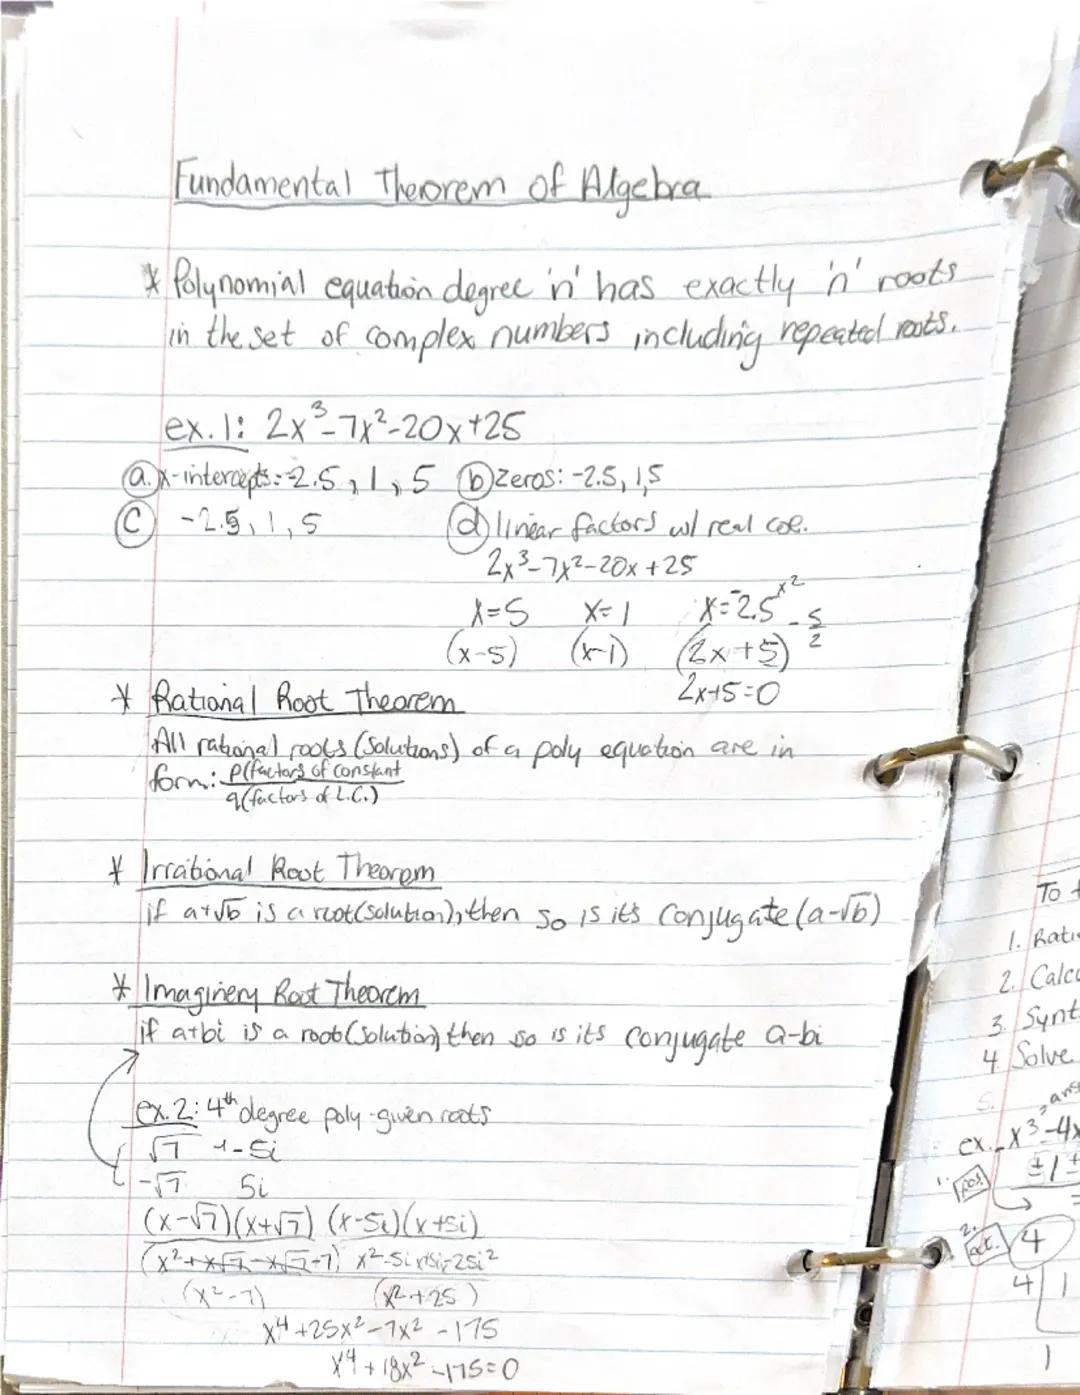 Fundamental Theorem of Algebra
* Polynomial equation degree 'n' has exactly 'n' roots
in the set of complex numbers including repeated roots.
ex. 1: 2x³-7x²-20x+25
a. x-intercepts: -2.5, 1, 5 b zeros: -2.5, 1, 5
C -2.5, 1, 5 d linear factors w/ real coe.
2x³-7x²-20x+25
x=5 x=1 x=-2.5 x2 -5/2
(x-5) (x-1) (2x+5)
2x+5=0
* Rational Root Theorem
All rational roots (solutions) of a poly equation are in
form: p(factors of constant
q(factors of L.C.)
* Irrational Root Theorem
if a+√b is a root(solution), then so is it's conjugate (a-√b)
* Imaginery Root Theorem
if a+bi is a root(solution) then so is its conjugate a-bi
ex. 2: 4th degree poly-given roots
√7 -5i
-√7 5i
(x-√7)(x+√7) (x-5i)(x+5i)
(x²+x√7-x√7-7) x²-5ix+5i-25i²
(x²-7) (x²+25)
x⁴+25x²-7x²-175
x⁴+18x²-175=0
To
1. Rati
2. Calcu
3. Synt
4. Solve
5. ans
ex. x³-4x
1. pos. ±1±
2. act. 4
4 1
1